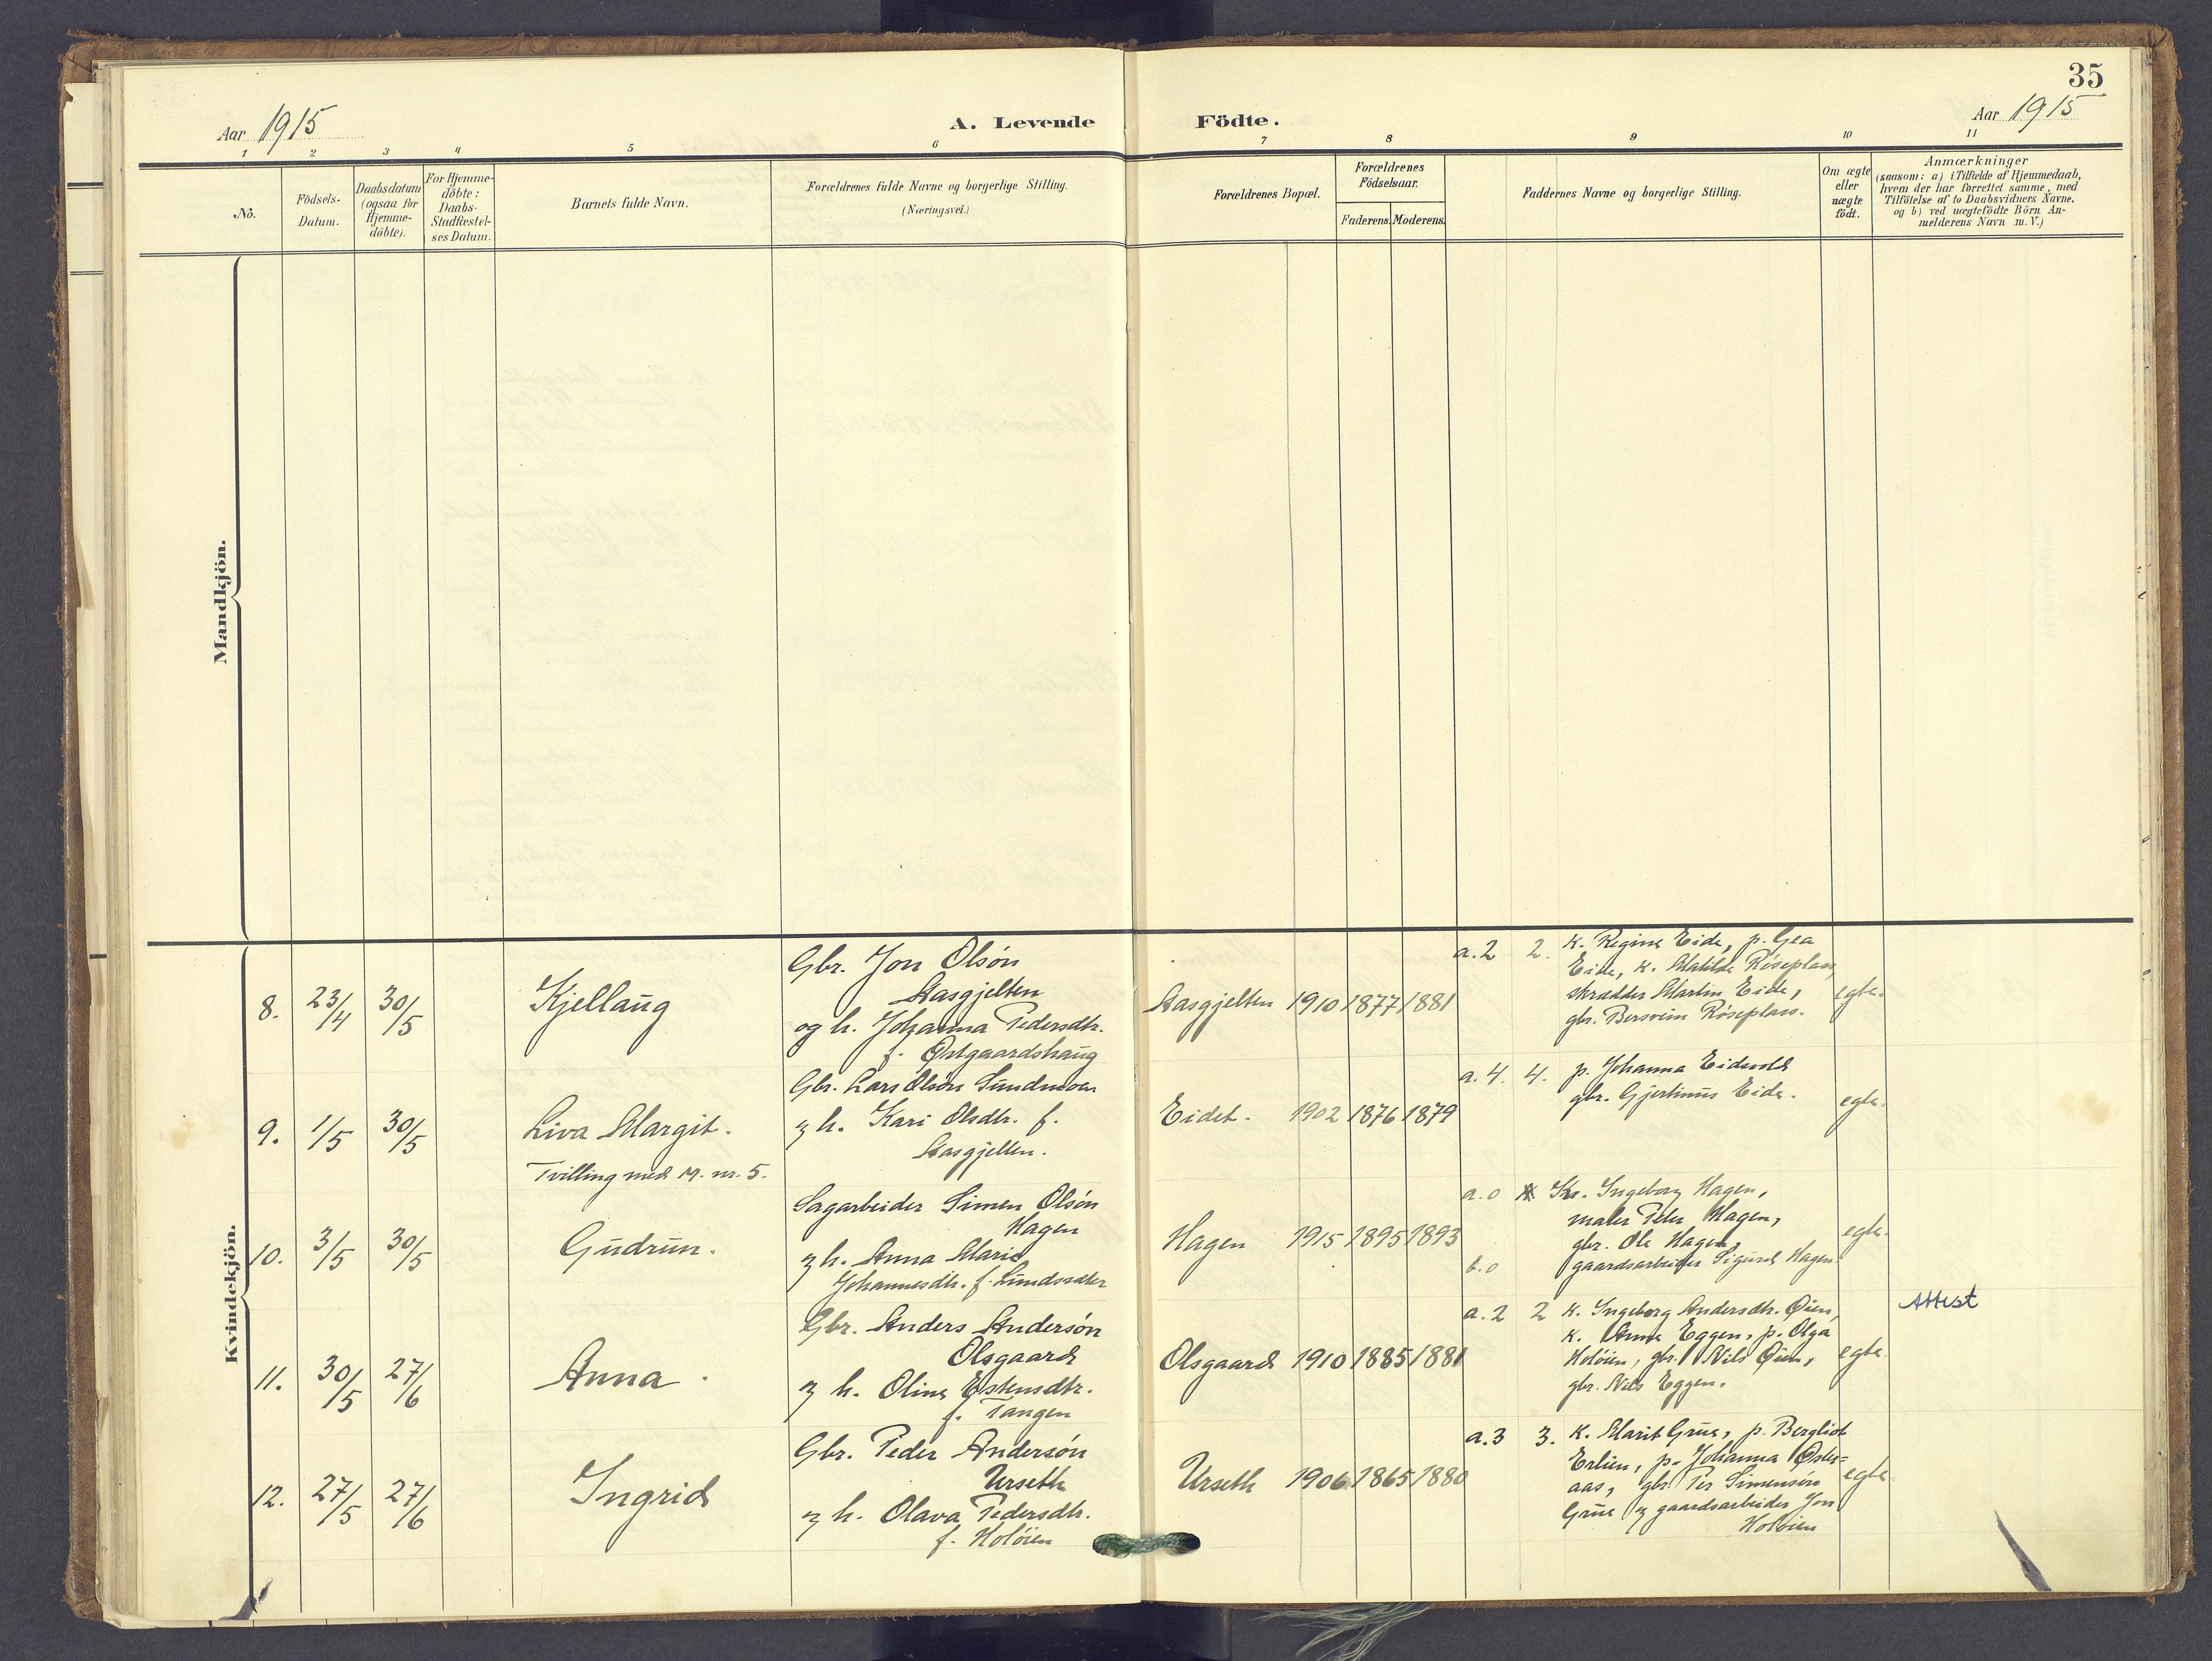 35
Aar 1915
A. Levende Födte.
Aar 1915
1 2 3 4 5 6 7 8 9 10 11
No.
Födsels-
Datum.
Daabsdatum
(ogsaa for
Hjemme-
döbte).
For Hjemme-
döbte:
Daabs-
Stadfæstel-
ses Datum.
Barnets fulde Navn.
Forældrenes fulde Navne og borgerlige Stilling.
(Næringsvei.)
Forældrenes Bopæl.
Forældrenes
Födselsaar.
Faderens. Moderens.
Faddernes Navne og borgerlige Stilling.
Om ægte
eller
uægte
födt.
Anmærkninger
(saasom: a) i Tilfælde af Hjemmedaab,
hvem der har forrettet samme, med
Tilföielse af to Daabsvidners Navne.
og b) ved uægtefödte Börn An-
melderens Navn m.V.)
Mandkjön.
Kvindekjön.
8. 23/4 30/5 Kjellaug
Gbr. Jon Olsön
Aasgjelten
og h. Johanna Pedersdtr.
f. Östgaardshaug
Aasgjelten 1910 1877 1881
a.2 2. k. Regine Eide, p. Gea
Eide, k. Matilde Röseplass,
skrædder Martin Eide,
gbr. Bersvein Röseplass.
egte.
9. 1/5 30/5 Liva Margit.
Tvilling med M. nr. 5.
Gbr. Lars Olsön Sundmoen
og h. Kari Olsdtr. f.
Aasgjelten.
Eidet. 1902 1876 1879
a.4. 4. p. Johanna Eidvold
gbr. Gjertinus Eide.
egte.
10. 3/5 30/5 Gudrun.
Sagarbeider Simen Olsön
Hagen
og h. Anna Marie
Johannesdtr. f. Lundsæter
Hagen 1915 1895 1893
a.0 K. Ingeborg Hagen,
maler Peter Hagen,
gbr. Ole Hagen,
b.0 gaardsarbeider Sigurd Hagen.
egte.
11. 30/5 27/6 Anna.
Gbr. Anders Andersön
Olsgaard
og h. Oline Estensdtr.
f. Tangen
Olsgaard 1910 1885 1881
a.2 2 k. Ingeborg Andersdtr. Öien,
k. Anna Eggen, p. Olga
Holöien, gbr. Nils Öien,
gbr. Nils Eggen.
egte
Attest
12. 27/5 27/6 Ingrid
Gbr. Peder Andersön
Urseth
og h. Olava Pedersdtr.
f. Holöien
Urseth 1906 1865 1880
a.3 3. k. Marit Grue, p. Bergliot
Erlien, p. Johanna Öster=
aas, gbr. Per Simensön
Grue og gaardsarbeider Jon
Holöien
egte